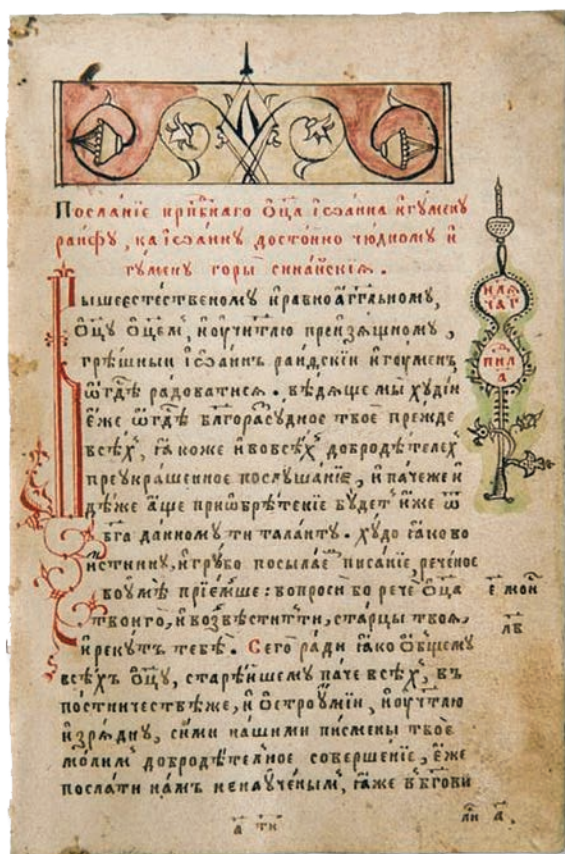 Посланїе прпⷣбнаго Ѻ҆ц҃а і҆ѡанна и҆гумену
раифу, ка і҆ѡанну достоино чюдному и҆
гумену горы синаискїѧ.
Вышеесте́ственому и҆ равноагг҃льному,
ѻ҆ц҃у ѻ҆ц҃емъ, и҆ оучт҃лю преизѧщному,
грѣшныи і҆ѡаннъ раиѳскїи и҆гоуменъ,
ѡ҆ гдⷭ҇ѣ радоватисѧ. вѣдѧще мы худїи
е҆же ѡ҆ гдⷭ҇ѣ блгорасудное твое прежде
всѣхъ, ꙗ҆коже и҆ во всѣхъ добродѣтелехъ
преукрашенное послушанїе, и҆ паче же и҆
дѣже а҆ще прїѡбрѣтенїе бу́детъ и҆же ѿ
бг҃а данному ти таланту. худо ꙗ҆ко во
истинну, и҆ грубо посылаеᷨ писанїе, реченое
во умѣ прїемше: вопроси бо рече ѻ҆ц҃а
твоего, и҆ возвѣститъ ти, старцы твоѧ,
и҆ рекутъ тебѣ. Сего ради ꙗ҆ко ѻ҆бщему
всѣхъ ѻ҆ц҃у, старѣишему паче всѣхъ, въ
постничествѣже, и҆ ѻ҆строумїи, и҆ оучт҃лю
и҆зрѧдну, сими нашими писмены твое
молимъ добродѣтелное совершенїе, е҆же
послати намъ ненаученымъ, ꙗ҆же в бг҃ови
и҆лѧ
чаг
пнл
а҃
е҃ мои
л҃в
а҃ ти
лⷭи а҃.